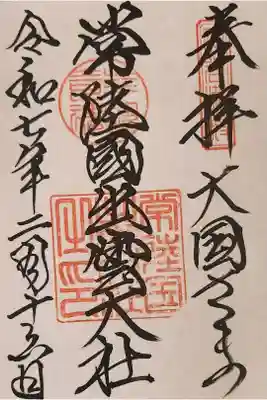 奉拝 大國さま
常陸國出雲大社
令和七年二月十六日